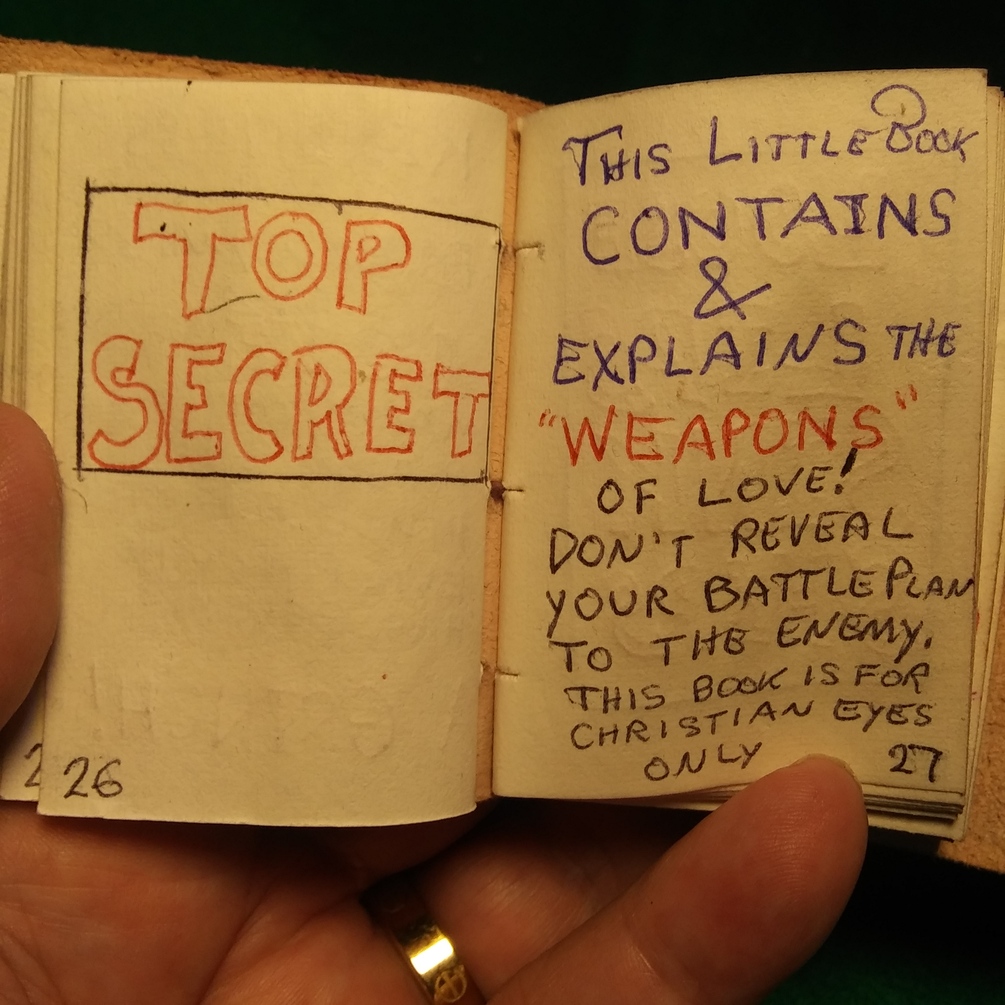 TOP
SECRET
26
THIS LITTLE BOOK
CONTAINS
&
EXPLAINS THE
"WEAPONS"
OF LOVE!
DON'T REVEAL
YOUR BATTLE PLAN
TO THE ENEMY.
THIS BOOK IS FOR
CHRISTIAN EYES
ONLY
27